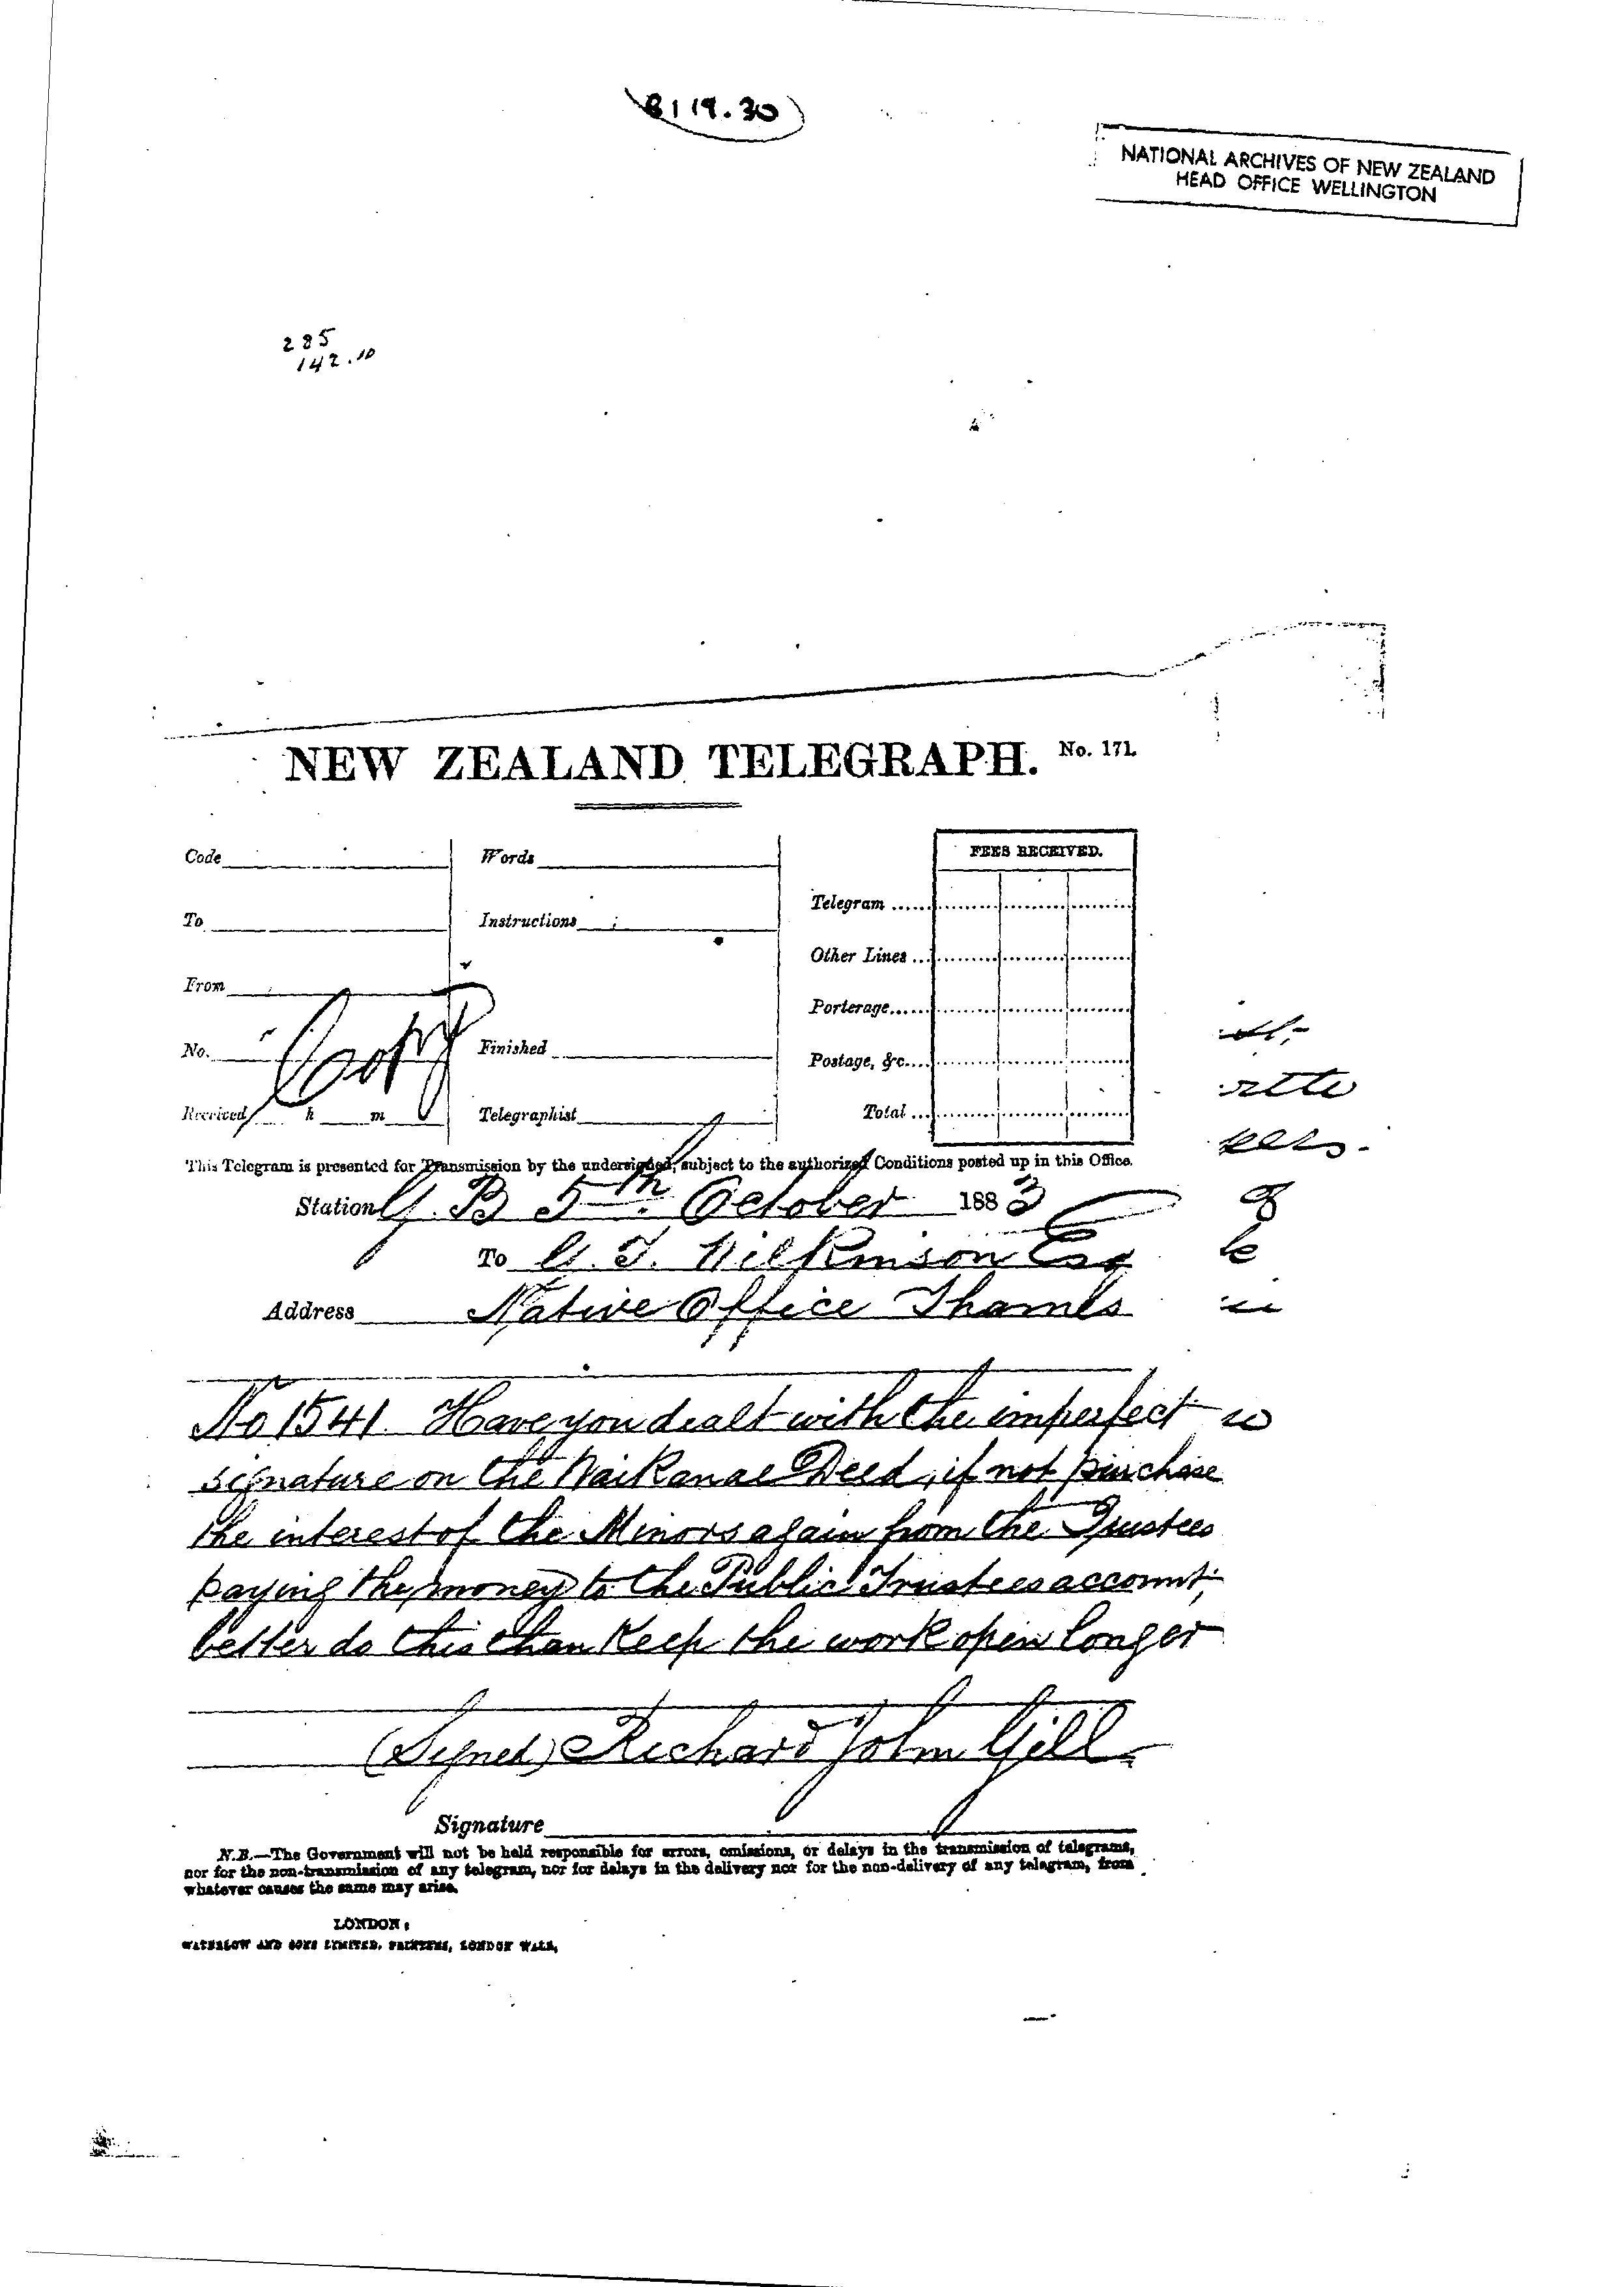 B119.30
NATIONAL ARCHIVES OF NEW ZEALAND
HEAD OFFICE WELLINGTON
285
142.10
NEW ZEALAND TELEGRAPH. No. 171.
FEES RECEIVED.
Code
Words
Telegram
To
Instructions
Other Lines
From
Porterage
Copy
No.
Finished
Postage, &c.
Received h m
Telegraphist
Total
This Telegram is presented for Transmission by the undersigned, subject to the authorized Conditions posted up in this Office.
Station G. B 5th October 1883
To G. T. Wilkinson Esq
Address Native Office Thames
No 1541. Have you dealt with the imperfect
signature on the Waikanae Deed, if not purchase
the interest of the Minors again from the Trustees
paying the money to the Public Trustees account,
better do this than keep the work open longer
(Signed) Richard John Gill
Signature
N.B.—The Government will not be held responsible for errors, omissions, or delays in the transmission of telegrams,
nor for the non-transmission of any telegram, nor for delays in the delivery nor for the non-delivery of any telegram, from
whatever causes the same may arise.
LONDON:
WATERLOW AND SONS LIMITED, PRINTERS, LONDON WALL.